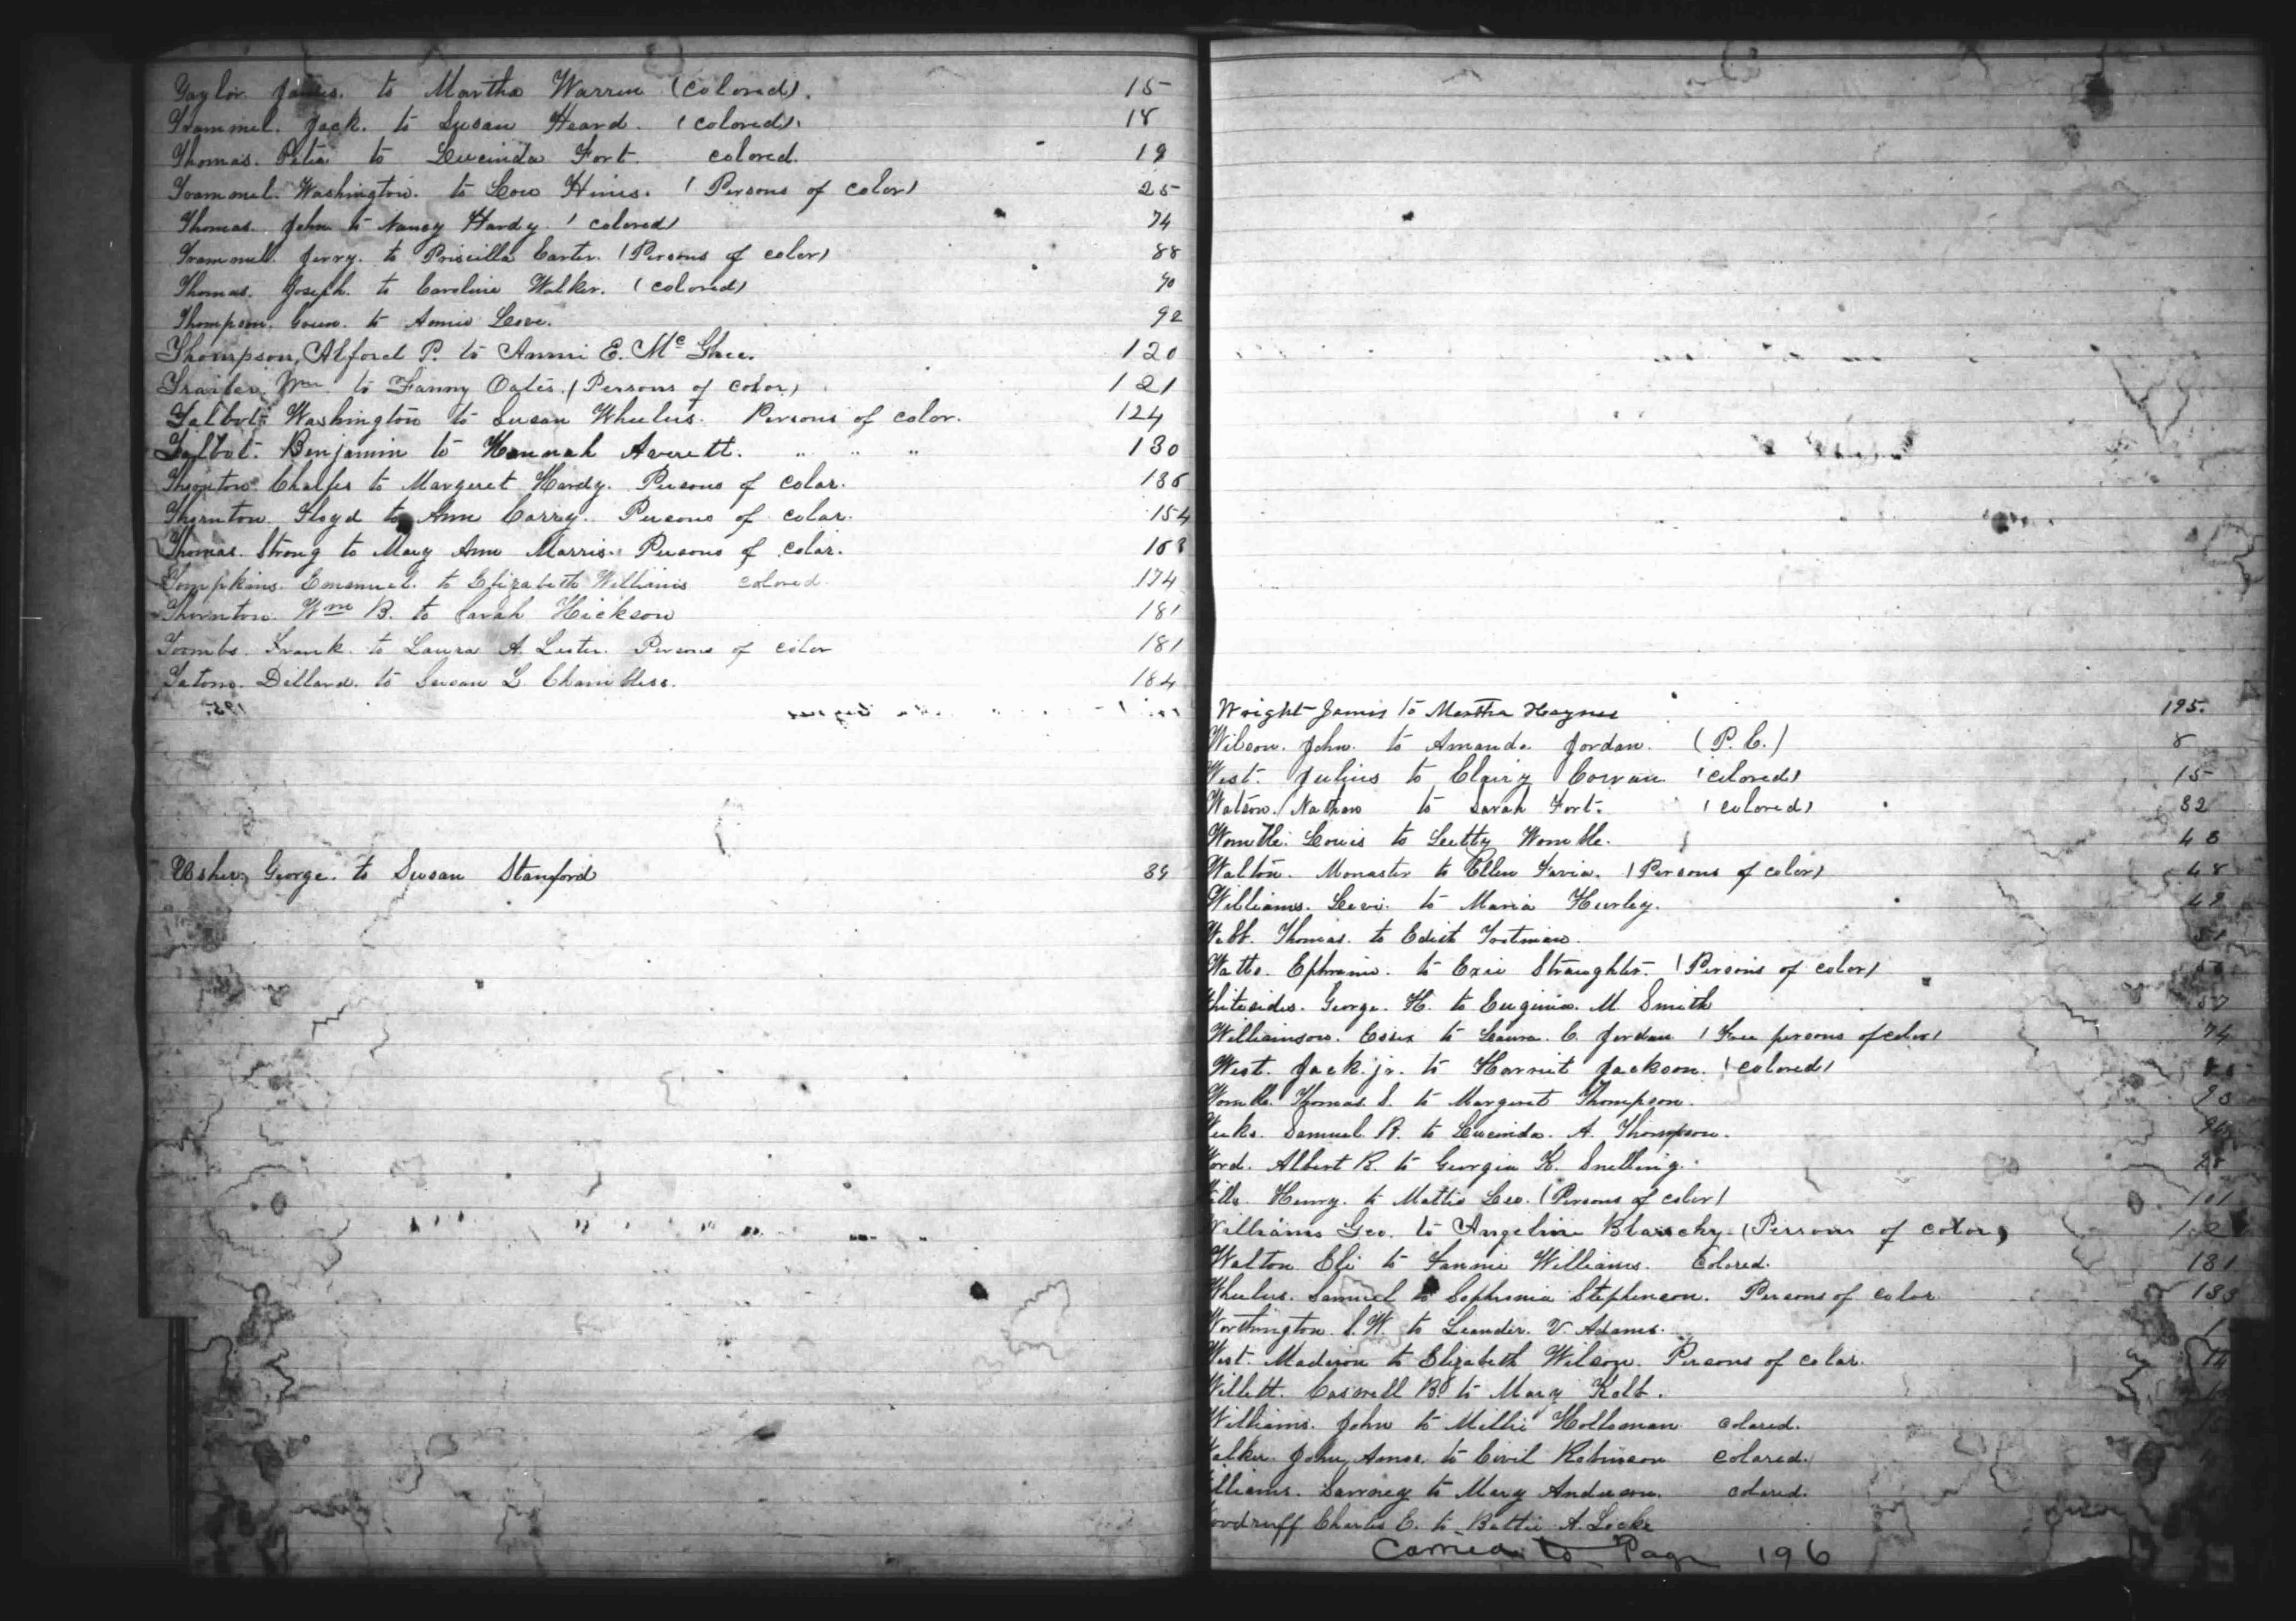 Taylor. James. to Martha Warren (Colored). 15
Trammel. Jack. to Susan Heard. (colored). 18
Thomas. Peter to Lucinda Fort. colored. 19
Trammel. Washington. to Lou Hines. (Persons of color) 25
Thomas. John to Nancy Hardy. (colored) 74
Trammell. Jerry. to Priscilla Carter. (Persons of color) 88
Thomas. Joseph. to Caroline Walker. (colored) 90
Thompson. Green. to Annie Love. 92
Thompson, Alford P. to Annie E. McGhee. 120
Trailer. Wm to Fanny Oates. (Persons of color) 121
Talbot. Washington to Susan Wheelus. Persons of color. 124
Talbot. Benjamin to Hannah Averett. " " " 130
Thornton. Charles to Margeret Hardy. Persons of color.
Thornton. Floyd to Ann Carry. Persons of color. 154
Thomas. Strong to Mary Ann Marris. Persons of color.
Tompkins. Emanuel. to Elizabeth Williams colored. 174
Thornton. Wm B. to Sarah Hickson 181
Toombs. Frank. to Laura A. Lester. Persons of color 181
Tatom. Dillard. to Susan L. Chambless. 184
Usher, George. to Susan Stanford
Wright James to Martha Haynes 195.
Wilson. John. to Amanda Jordan. (P. C.) 8
West. Julius to Clairy Cowan (colored) 15
Watson. Nathan to Sarah Fort. (colored) 32
Womble. Louis to Letty Womble.
Walton. Monaster to Ellen Favia. (Persons of color) 48
Williams. Levi. to Maria Hurley. 49
Webb. Thomas. to Edith Trotman.
Watts. Ephraim. to Exie Straughter. (Persons of color)
Whitesides. George. H. to Eugenia. M. Smith 57
Williamson. Essex to Laura. C. Jordan (Free persons of color) 74
West. Jack. jr. to Harriet Jackson. (colored)
Womble. Thomas. S. to Margaret Thompson.
Weeks. Samuel. R. to Lucinda. A. Thompson.
Word. Albert R. to Georgia K. Snelling.
Wills. Henry. to Mattie Lee. (Persons of color) 101
Williams Geo. to Angeline Blanchy (Persons of color)
Walton Eli to Fannie Williams. Colored. 131
Wheelus. Samuel to Sophronia Stephenson. Persons of color 133
Worthington. S. W. to Leander. V. Adams.
West. Madison to Elizabeth Wilson. Persons of color.
Willett. Caswell B. to Mary Kolb.
Williams. John to Millie Holloman colored.
Walker. John Amos. to Civil Robinson colored.
Williams. to Mary Anderson. colored.
Woodruff Charles E. to Bettie A. Locke
Carried to Page 196